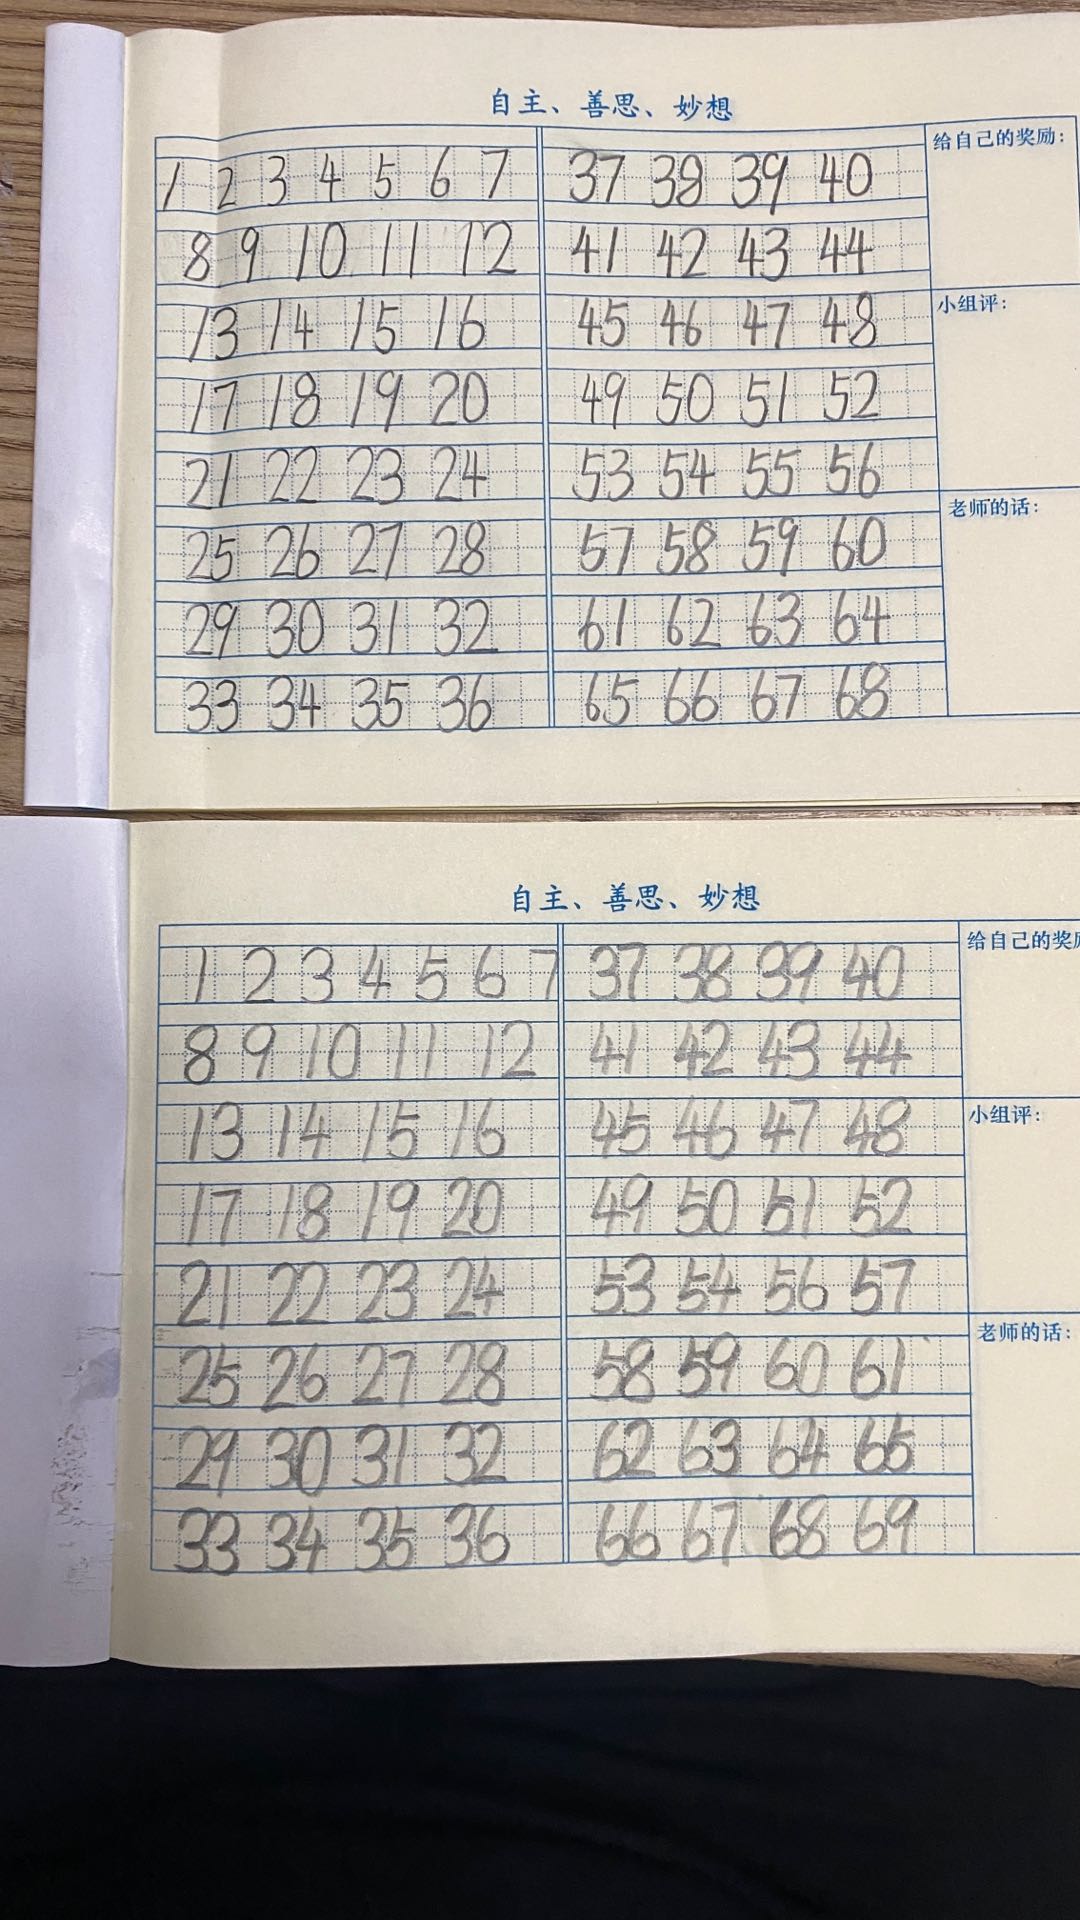 自主、善思、妙想
1 2 3 4 5 6 7
8 9 10 11 12
13 14 15 16
17 18 19 20
21 22 23 24
25 26 27 28
29 30 31 32
33 34 35 36
37 38 39 40
41 42 43 44
45 46 47 48
49 50 51 52
53 54 55 56
57 58 59 60
61 62 63 64
65 66 67 68
给自己的奖励：
小组评：
老师的话：
自主、善思、妙想
1 2 3 4 5 6 7
8 9 10 11 12
13 14 15 16
17 18 19 20
21 22 23 24
25 26 27 28
29 30 31 32
33 34 35 36
37 38 39 40
41 42 43 44
45 46 47 48
49 50 51 52
53 54 56 57
58 59 60 61
62 63 64 65
66 67 68 69
给自己的奖
小组评：
老师的话：